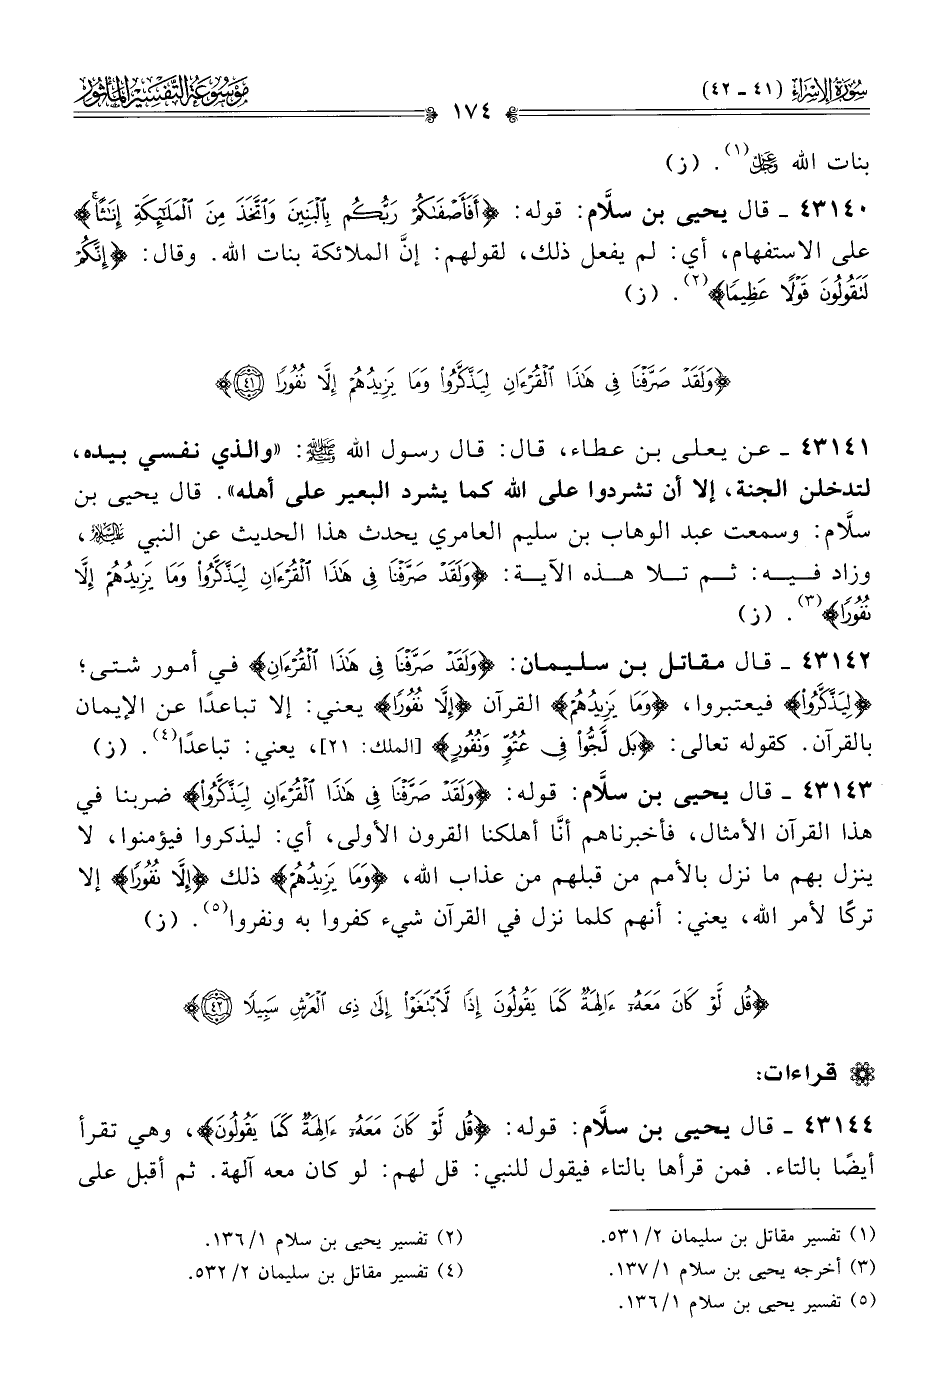 سُورَةُ الإِسْرَاءِ (٤١ - ٤٢)
مَوْسُوعَةُ التَّفْسِيرِ المَأْثُورِ
١٧٤
بنات الله ﷿(١). (ز)
٤٣١٤٠ ـ قال يحيى بن سلَّام: قوله: ﴿أَفَأَصْفَىٰكُمْ رَبُّكُم بِٱلْبَنِينَ وَٱتَّخَذَ مِنَ ٱلْمَلَٰٓئِكَةِ إِنَٰثًا﴾
على الاستفهام، أي: لم يفعل ذلك، لقولهم: إنَّ الملائكة بنات الله. وقال: ﴿إِنَّكُمْ
لَتَقُولُونَ قَوْلًا عَظِيمًا﴾(٢). (ز)
﴿وَلَقَدْ صَرَّفْنَا فِى هَٰذَا ٱلْقُرْءَانِ لِيَذَّكَّرُوا۟ وَمَا يَزِيدُهُمْ إِلَّا نُفُورًا ٤١﴾
٤٣١٤١ ـ عن يعلى بن عطاء، قال: قال رسول الله ﷺ: «والذي نفسي بيده،
لتدخلن الجنة، إلا أن تشردوا على الله كما يشرد البعير على أهله». قال يحيى بن
سلَّام: وسمعت عبد الوهاب بن سليم العامري يحدث هذا الحديث عن النبي ﵇،
وزاد فيه: ثم تلا هذه الآية: ﴿وَلَقَدْ صَرَّفْنَا فِى هَٰذَا ٱلْقُرْءَانِ لِيَذَّكَّرُوا۟ وَمَا يَزِيدُهُمْ إِلَّا
نُفُورًا﴾(٣). (ز)
٤٣١٤٢ ـ قال مقاتل بن سليمان: ﴿وَلَقَدْ صَرَّفْنَا فِى هَٰذَا ٱلْقُرْءَانِ﴾ في أمور شتى؛
﴿لِيَذَّكَّرُوا۟﴾ فيعتبروا، ﴿وَمَا يَزِيدُهُمْ﴾ القرآن ﴿إِلَّا نُفُورًا﴾ يعني: إلا تباعدًا عن الإيمان
بالقرآن. كقوله تعالى: ﴿بَل لَّجُّوا۟ فِى عُتُوٍّ وَنُفُورٍ﴾ [الملك: ٢١]، يعني: تباعدًا(٤). (ز)
٤٣١٤٣ ـ قال يحيى بن سلَّام: قوله: ﴿وَلَقَدْ صَرَّفْنَا فِى هَٰذَا ٱلْقُرْءَانِ لِيَذَّكَّرُوا۟﴾ ضربنا في
هذا القرآن الأمثال، فأخبرناهم أنَّا أهلكنا القرون الأولى، أي: ليذكروا فيؤمنوا، لا
ينزل بهم ما نزل بالأمم من قبلهم من عذاب الله، ﴿وَمَا يَزِيدُهُمْ﴾ ذلك ﴿إِلَّا نُفُورًا﴾ إلا
تركًا لأمر الله، يعني: أنهم كلما نزل في القرآن شيء كفروا به ونفروا(٥). (ز)
﴿قُل لَّوْ كَانَ مَعَهُۥٓ ءَالِهَةٌ كَمَا يَقُولُونَ إِذًا لَّٱبْتَغَوْا۟ إِلَىٰ ذِى ٱلْعَرْشِ سَبِيلًا ٤٢﴾
قراءات:
٤٣١٤٤ ـ قال يحيى بن سلَّام: قوله: ﴿قُل لَّوْ كَانَ مَعَهُۥٓ ءَالِهَةٌ كَمَا يَقُولُونَ﴾، وهي تقرأ
أيضًا بالتاء. فمن قرأها بالتاء فيقول للنبي: قل لهم: لو كان معه آلهة. ثم أقبل على
(١) تفسير مقاتل بن سليمان ٢/ ٥٣١.
(٢) تفسير يحيى بن سلام ١/ ١٣٦.
(٣) أخرجه يحيى بن سلام ١/ ١٣٧.
(٤) تفسير مقاتل بن سليمان ٢/ ٥٣٢.
(٥) تفسير يحيى بن سلام ١/ ١٣٦.